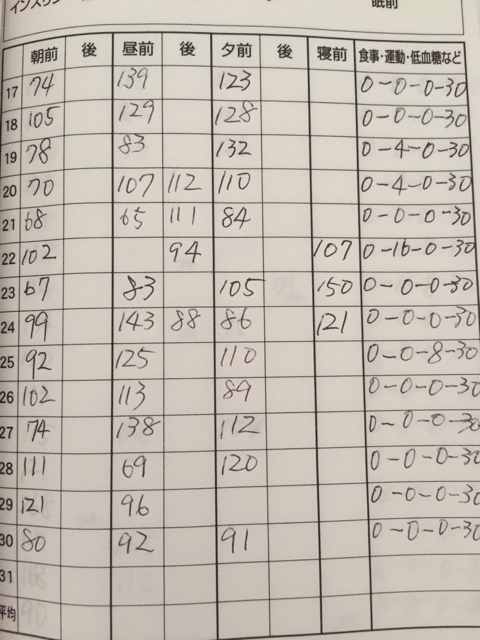 インスリン 眠前
朝前 後 昼前 後 夕前 後 寝前 食事・運動・低血糖など
17 74 139 123 0-0-0-30
18 105 129 128 0-0-0-30
19 78 83 132 0-4-0-30
20 70 107 112 110 0-4-0-30
21 68 65 111 84 0-0-0-30
22 102 94 107 0-16-0-30
23 67 83 105 150 0-0-0-30
24 99 143 88 86 121 0-0-0-30
25 92 125 110 0-0-8-30
26 102 113 89 0-0-0-30
27 74 138 112 0-0-0-30
28 111 69 120 0-0-0-30
29 121 96 0-0-0-30
30 80 92 91 0-0-0-30
31
平均